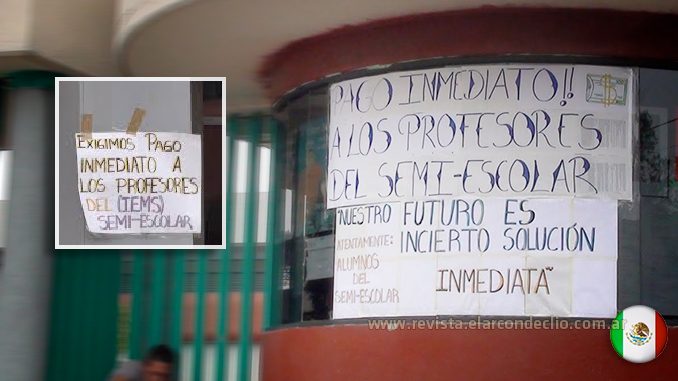 EXIGIMOS PAGO
INMEDIATO A
LOS PROFESORES
DEL (IEMS)
SEMI-ESCOLAR
PAGO INMEDIATO!!
A LOS PROFESORES
DEL SEMI-ESCOLAR
"NUESTRO FUTURO ES
INCIERTO SOLUCIÓN
INMEDIATÃ
ATENTAMENTE:
ALUMNOS
DEL
SEMI-ESCOLAR
www.revista.elarcondeclio.com.ar